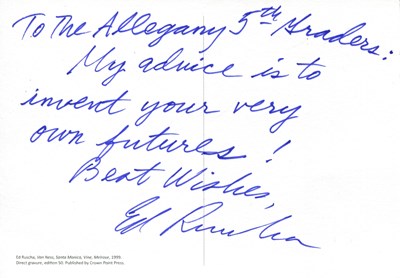 To The Allegany 5th Graders:
My advice is to
invent your very
own futures!
Best Wishes,
Ed Ruscha
Ed Ruscha, Van Ness, Santa Monica, Vine, Melrose, 1999.
Direct gravure, edition 50. Published by Crown Point Press.